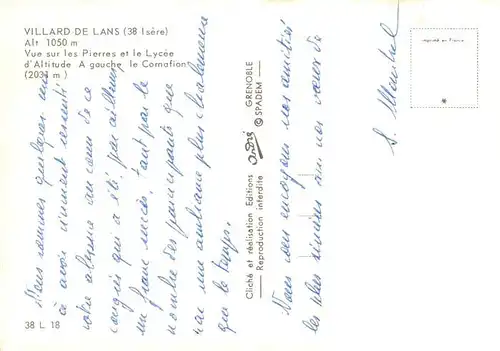 VILLARD-DE-LANS (38 Isère)
Alt 1050 m
Vue sur les Pierres et le Lycée
d'Altitude A gauche le Cornafion
(2031 m)
Nous sommes quelques uns
à avoir vivement ressenti
votre absence au cours de ce
congrès qui a été, par ailleurs,
un franc succès. Tant par le
nombre des participants que
par une ambiance plus chaleureuse
que le temps.
Nous vous envoyons nos amitiés
les plus sincères ainsi nos vœux de
38 L 18
Cliché et réalisation Editions GRENOBLE
Reproduction interdite © SPADEM
Imprimé en France